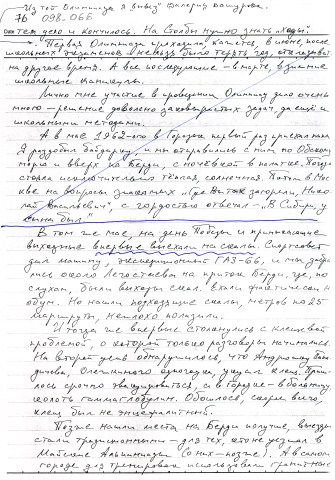 Из той Олимпиады я вывез Валерку Кашурова.
76 098-066
тем дело и кончилось. На Столбы нужно знать "Ходы"
Первая Олимпиада проходила, кажется, в июне, после
школьных экзаменов
другое время. А все последующие - в марте, в зимние
школьные каникулы.
Лично мне участие в проведении Олимпиад дало очень
много - решение довольно заковыристых задач, да ещё и
школьными методами.
А в мае 1962-ого в Городок первый раз приехал папа.
Я раздобыл байдарку, и мы отправились с ним по Обскому
морю и вверх по Берди, с ночёвкой в палатке. Погода
стояла исключительно тёплая, солнечная. Потом в Мос
кве на вопросы знакомых "Где Вы так загорели, Нико
лай Васильевич", с гордостью отвечал - "В Сибири, у
сына был"
В том же мае, на день Победы и прилегающие
выходные впервые выехали на скалы. Спортсовет
дал машину, экспедиционный ГАЗ-66, и мы, забра
лись около Легостаева на приток Берди, где, по
слухам, были выходы скал. Ехали фактически на
обум. Но нашли подходящие скалы, метров по 25
маршруты, неплохо полазили.
И тогда же впервые столкнулись с клещевой
проблемой, о которой только разговоры начинались.
На второй день обнаружилось, что Андрюшу
дичева, Олежкиного одногодка, укусил клещ. Приш
лось срочно эвакуироваться, и в Городке - в больницу
колоть гаммаглобулин. Обошлось, скорее всего
клещ был не энцефалитный.
Позже нашли места на Берди получше, выезды
стали традиционными - для тех, кто не уезжал в
Майские Альпиниады (о них - позже). А в самом
городе для тренировок использовали гранитные